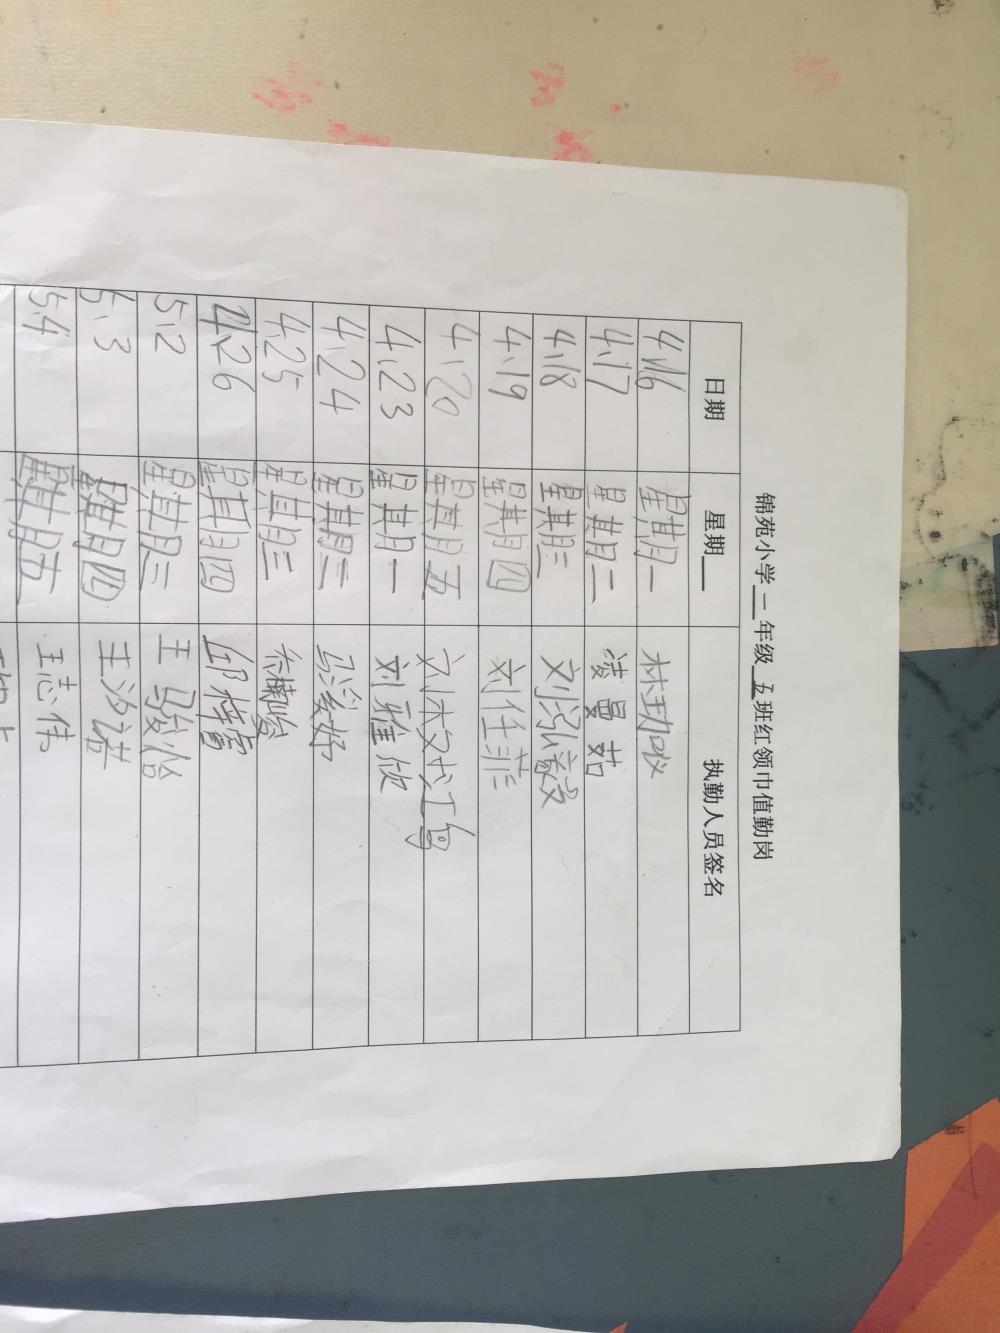 锦苑小学一年级五班红领巾值勤岗
日期 星期 执勤人员签名
4.16 星期一 林珈仪
4.17 星期二 凌曼茹
4.18 星期三 刘泓毅
4.19 星期四 刘任菲
4.20 星期五
4.23 星期一 刘雅欣
4.24 星期二
4.25 星期三
4.26 星期四
5.2 星期三 王骏怡
5.3 星期四 王沙诺
5.4 星期五 王志伟